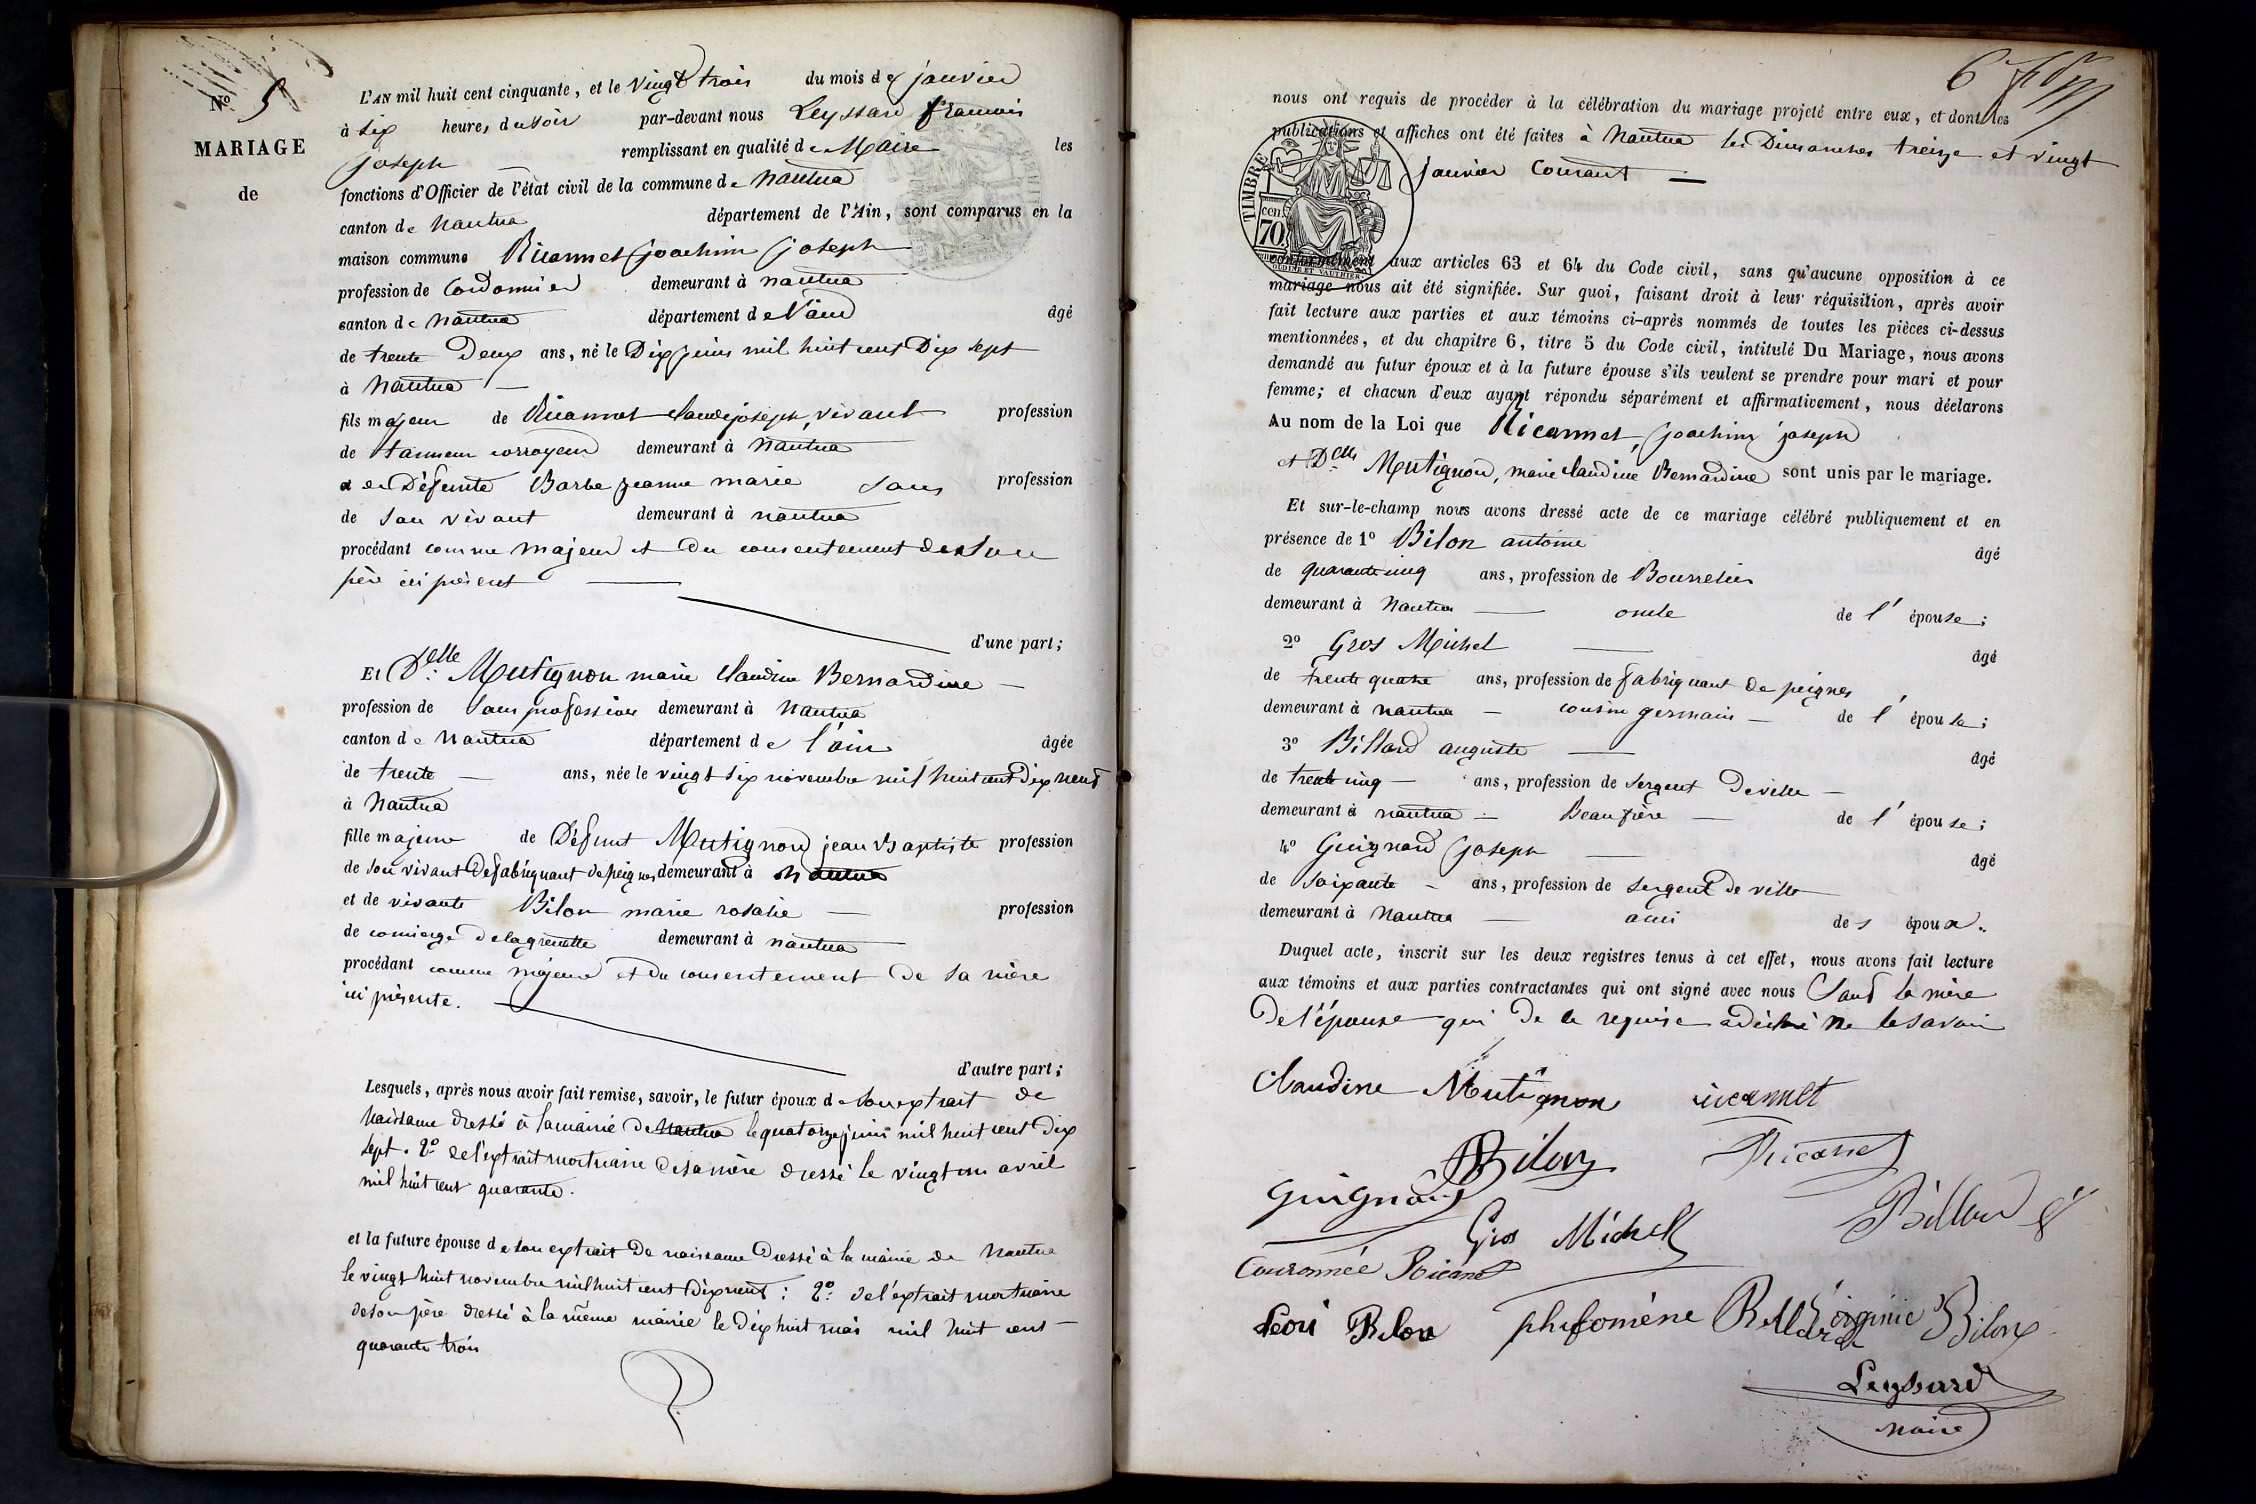 N° 5
MARIAGE
de
L'AN mil huit cent cinquante, et le vingt trois du mois de janvier
à six heures du soir par-devant nous Leyssard francois
joseph remplissant en qualité de Maire les
fonctions d'Officier de l'état civil de la commune de Nantua
canton de Nantua département de l'Ain, sont comparus en la
maison commune Ricannet joachim joseph
profession de Cordonnier demeurant à nantua
canton de Nantua département de l'ain âgé
de trente Deux ans, né le Dix juin mil huit cent Dix sept
à Nantua
fils majeur de Ricannet claude joseph, vivant profession
de tanneur corroyeur demeurant à Nantua
et de Défunte Barbe jeanne marie sans profession
de son vivant demeurant à nantua
procédant comme majeur et du consentement de son
père ici présent
d'une part;
Et Delle Mutignon marie claudine Bernardine
profession de sans profession demeurant à Nantua
canton de Nantua département de l'ain âgée
de trente ans, née le vingt six novembre mil huit cent dix neuf
à Nantua
fille majeure de Défunt Mutignon jean Baptiste profession
de son vivant de fabriquant de peignes demeurant à nantua
et de vivante Bilon marie rosalie profession
de concierge de la grenette demeurant à nantua
procédant comme majeure et du consentement de sa mère
ici présente.
d'autre part;
Lesquels, après nous avoir fait remise, savoir, le futur époux de son extrait de
naissance dressé à la mairie de Nantua le quatorze juin mil huit cent dix
sept. 2° de l'extrait mortuaire de sa mère dressé le vingt un avril
mil huit cent quarante.
et la future épouse de son extrait de naissance dressé à la mairie de Nantua
le vingt huit novembre mil huit cent dix neuf; 2° de l'extrait mortuaire
de son père dressé à la même mairie le dix huit mai mil huit cent
quarante trois
6
nous ont requis de procéder à la célébration du mariage projeté entre eux, et dont les
publications et affiches ont été faites à Nantua les Dimanches treize et vingt
janvier courant
TIMBRE
cen.
70
conformément aux articles 63 et 64 du Code civil, sans qu'aucune opposition à ce
mariage nous ait été signifiée. Sur quoi, faisant droit à leur réquisition, après avoir
fait lecture aux parties et aux témoins ci-après nommés de toutes les pièces ci-dessus
mentionnées, et du chapitre 6, titre 5 du Code civil, intitulé Du Mariage, nous avons
demandé au futur époux et à la future épouse s'ils veulent se prendre pour mari et pour
femme; et chacun d'eux ayant répondu séparément et affirmativement, nous déclarons
Au nom de la Loi que Ricannet, joachim joseph
et Delle Mutignon, marie claudine Bernardine sont unis par le mariage.
Et sur-le-champ nous avons dressé acte de ce mariage célébré publiquement et en
présence de 1° Bilon antoine âgé
de quarante cinq ans, profession de Bourrelier
demeurant à Nantua oncle de l'épouse;
2° Gros Michel âgé
de trente quatre ans, profession de fabriquant de peignes
demeurant à nantua cousin germain de l'épouse;
3° Billard auguste âgé
de trente cinq ans, profession de sergent de ville
demeurant à nantua Beaufrère de l'épouse;
4° Guignard joseph âgé
de soixante ans, profession de sergent de ville
demeurant à Nantua ami des époux.
Duquel acte, inscrit sur les deux registres tenus à cet effet, nous avons fait lecture
aux témoins et aux parties contractantes qui ont signé avec nous sauf la mère
de l'épouse qui de ce requise a déclaré ne le savoir
Claudine Mutignon ricannet
Bilon Ricanet
Guignard
Gros Michel Billard
Couronnée Ricanet
Léon Bilon philomène Billard Virginie Bilon
Leyssard
maire